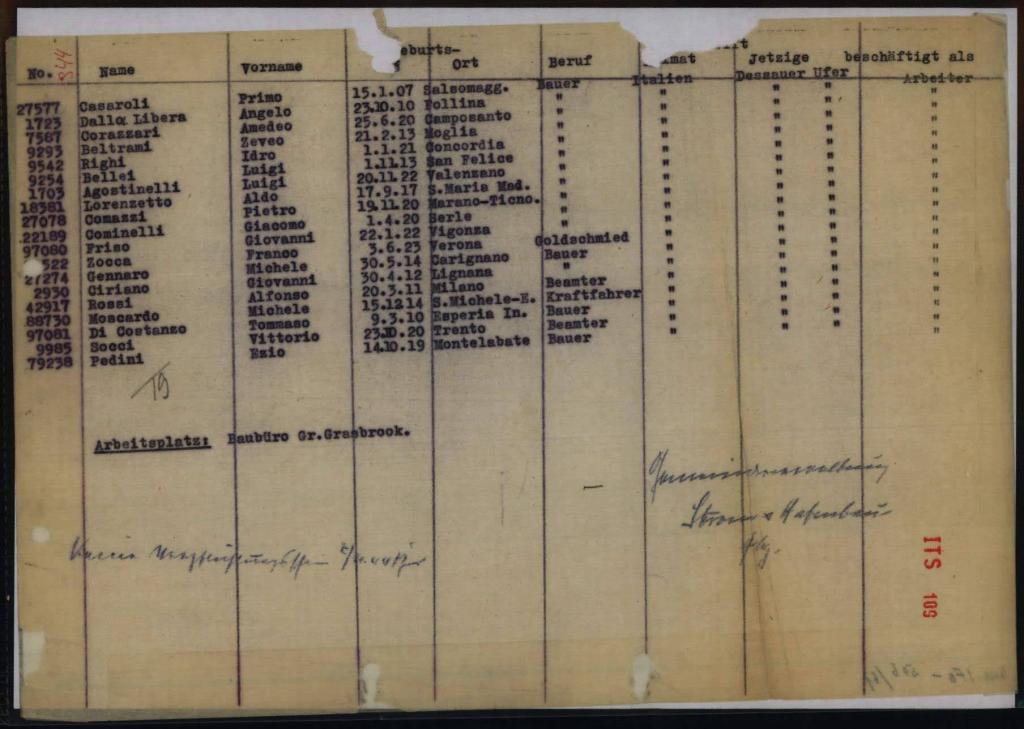 844
eburts- ift
No. Name Vorname Ort Beruf imat Jetzige beschäftigt als
27577 Casaroli Primo 15.1.07 Salsomagg. Bauer Italien Dessauer Ufer Arbeiter
1723 Dalla Libera Angelo 23.10.10 Pollina " " " " "
7587 Corazzari Amedeo 25.6.20 Camposanto " " " " "
9293 Beltrami Zeveo 21.2.13 Moglia " " " " "
9542 Righi Idro 1.1.21 Concordia " " " " "
9254 Bellei Luigi 1.11.13 San Felice " " " " "
1703 Agostinelli Luigi 20.11.22 Valenzano " " " " "
18381 Lorenzetto Aldo 17.9.17 S.Maria Mad. " " " " "
27078 Comazzi Pietro 19.11.20 Marano-Ticno. " " " " "
22189 Cominelli Giacomo 1.4.20 Serle " " " " "
97080 Friso Giovanni 22.1.22 Vigonza " " " " "
522 Zocca Franco 3.6.23 Verona Goldschmied " " " "
27274 Gennaro Michele 30.5.14 Carignano Bauer " " " "
2930 Ciriano Giovanni 30.4.12 Lignana " " " " "
42917 Rossi Alfonso 20.3.11 Milano Beamter " " " "
88730 Moscardo Michele 15.12.14 S.Michele-E. Kraftfahrer " " " "
97081 Di Costanzo Tommaso 9.3.10 Esperia In. Bauer " " " "
9985 Socci Vittorio 23.10.20 Trento Beamter " " " "
79238 Pedini Ezio 14.10.19 Montelabate Bauer " " " "
19
Arbeitsplatz: Baubüro Gr.Grasbrook.
Gemeindeverwaltung
Strom & Hafenbau
ITS 109